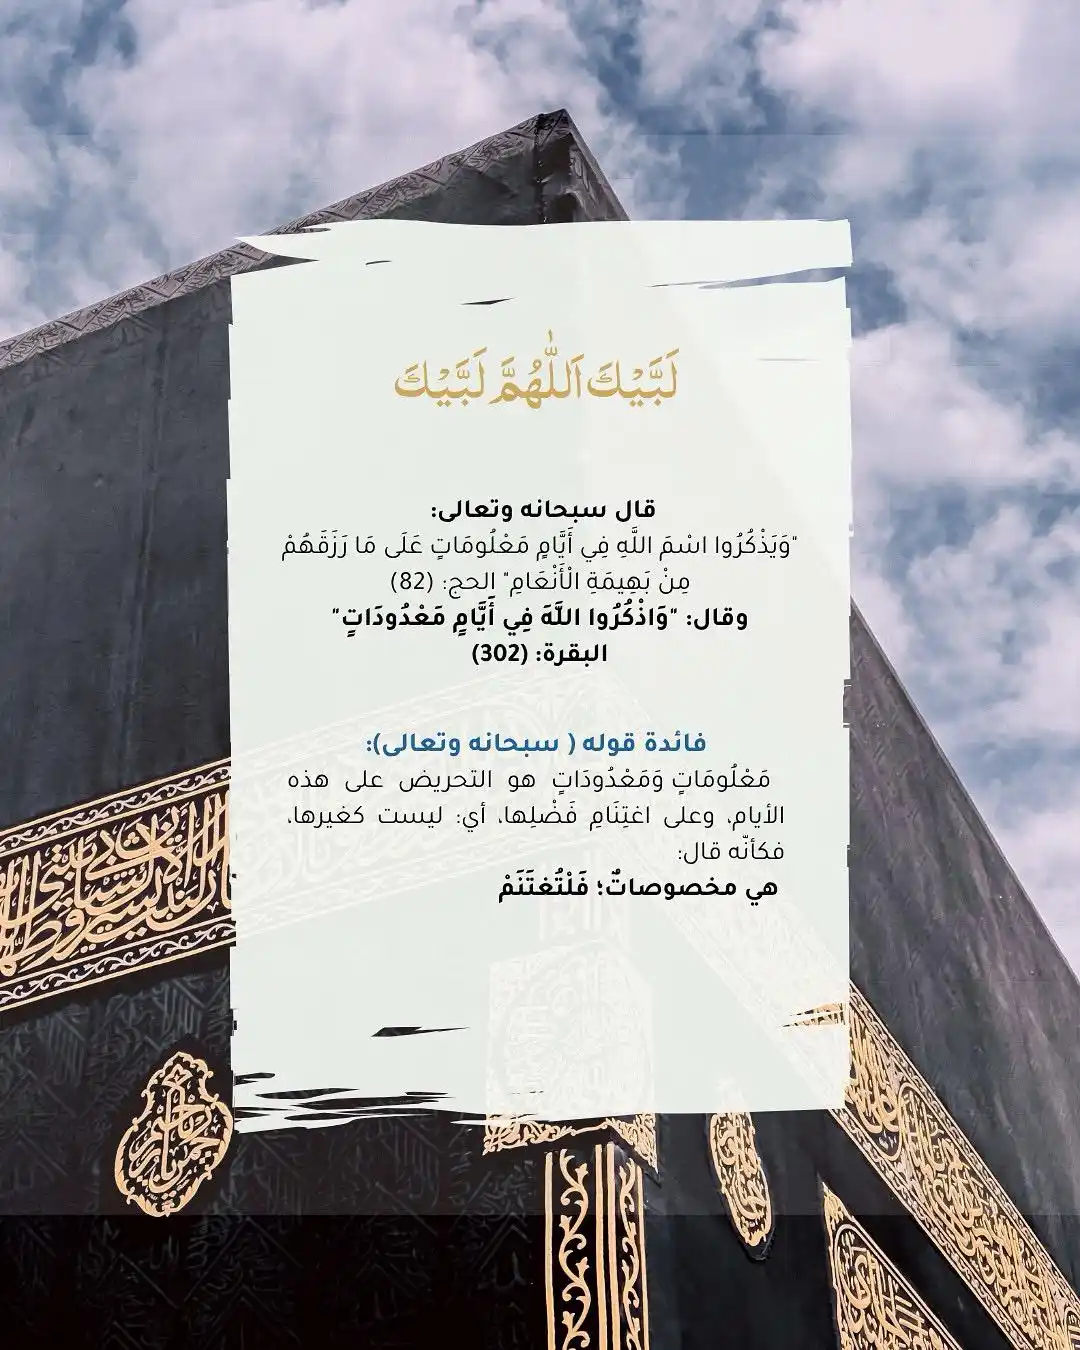 لَبَّيْكَ اَللّٰهُمَّ لَبَّيْكَ
قال سبحانه وتعالى:
"وَيَذْكُرُوا اسْمَ اللَّهِ فِي أَيَّامٍ مَعْلُومَاتٍ عَلَى مَا رَزَقَهُمْ
مِنْ بَهِيمَةِ الْأَنْعَامِ" الحج: (82)
وقال: "وَاذْكُرُوا اللَّهَ فِي أَيَّامٍ مَعْدُودَاتٍ"
البقرة: (302)
فائدة قوله ( سبحانه وتعالى):
مَعْلُومَاتٍ وَمَعْدُودَاتٍ هو التحريض على هذه
الأيام، وعلى اغتِنَامِ فَضْلِها، أي: ليست كغيرها،
فكأنّه قال:
هي مخصوصاتٌ؛ فَلْتُغتَنَمْ